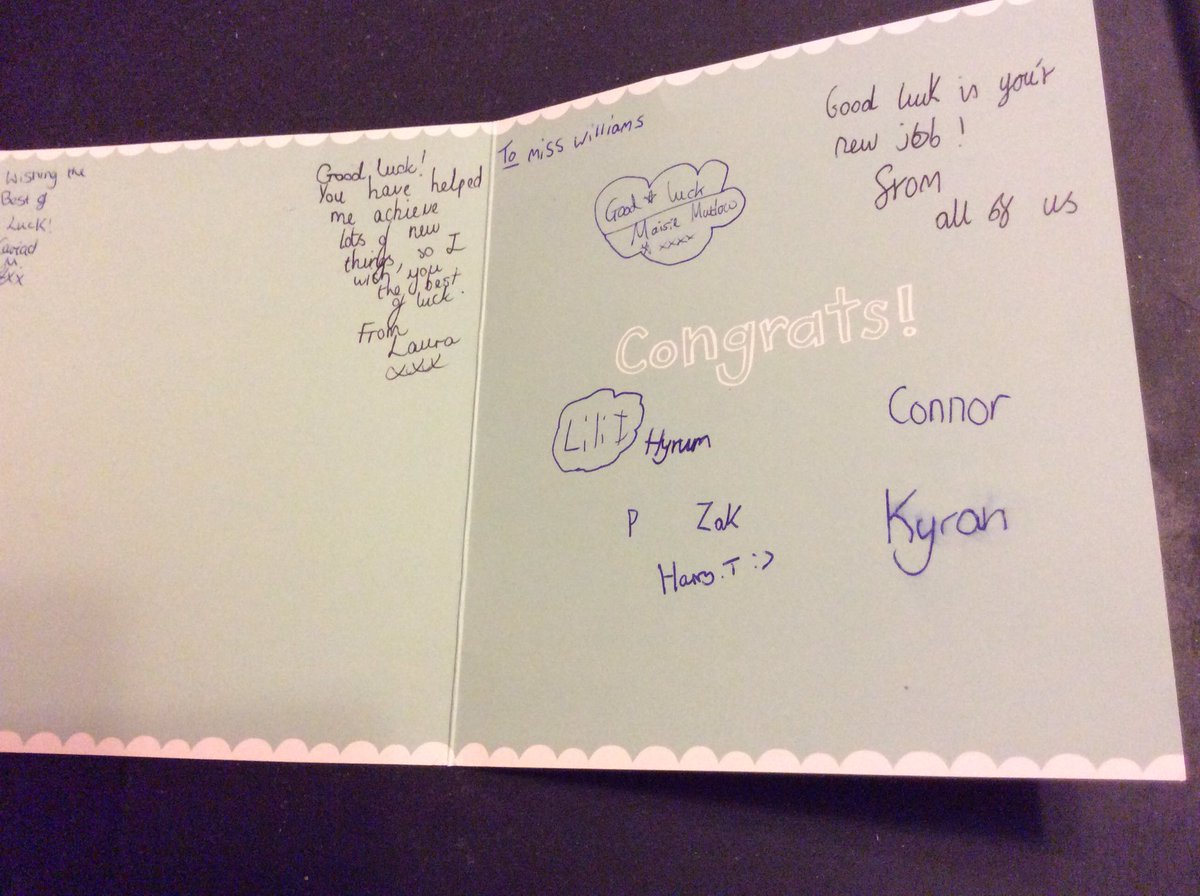 Wishing the
Best of
Luck!
M
xxx
Good luck!
You have helped
me achieve
lots of new
things, so I
wish you
the best
of luck.
From
Laura
xxxx
To miss Williams
Good luck
Maisie Mutlow
xxxx
Good luck in you'r
new job!
from
all of us
Congrats!
Lili I
Hyrum
Connor
P Zak
Kyran
Harry.T :)